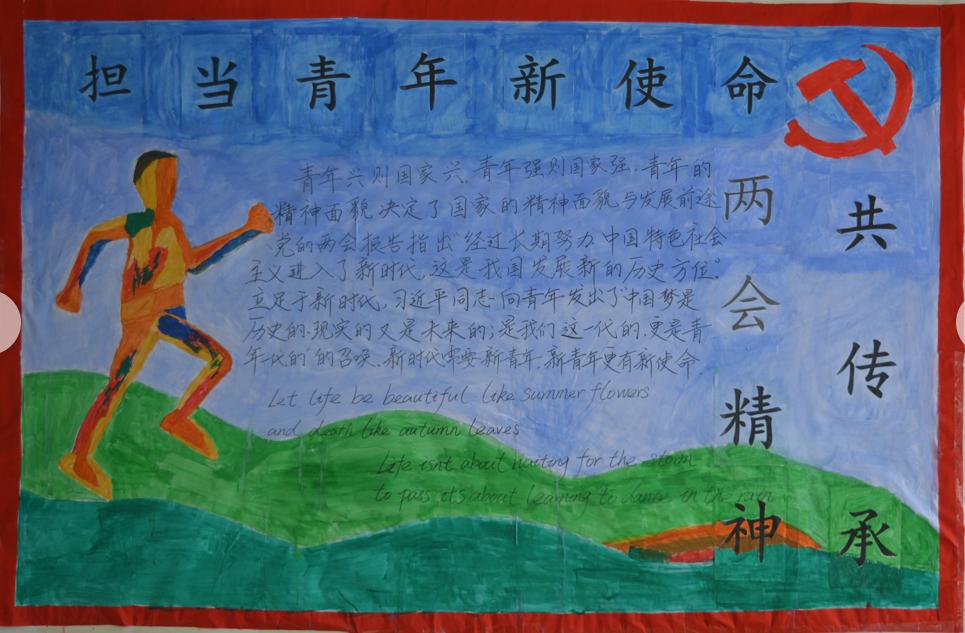 担当青年新使命
共传承
两会精神
青年兴则国家兴,青年强则国家强.青年的
精神面貌决定了国家的精神面貌与发展前途
党的两会报告指出"经过长期努力中国特色社会
主义进入了新时代,这是我国发展新的历史方位"
立足于新时代,习近平同志向青年发出了"中国梦是
历史的.现实的又是未来的;是我们这一代的.更是青
年代的"的召唤.新时代需要新青年.新青年更有新使命.
Let life be beautiful like summer flowers
and death like autumn leaves
Life isnt about waiting for the storm
to pass its about learning to dance in the rain